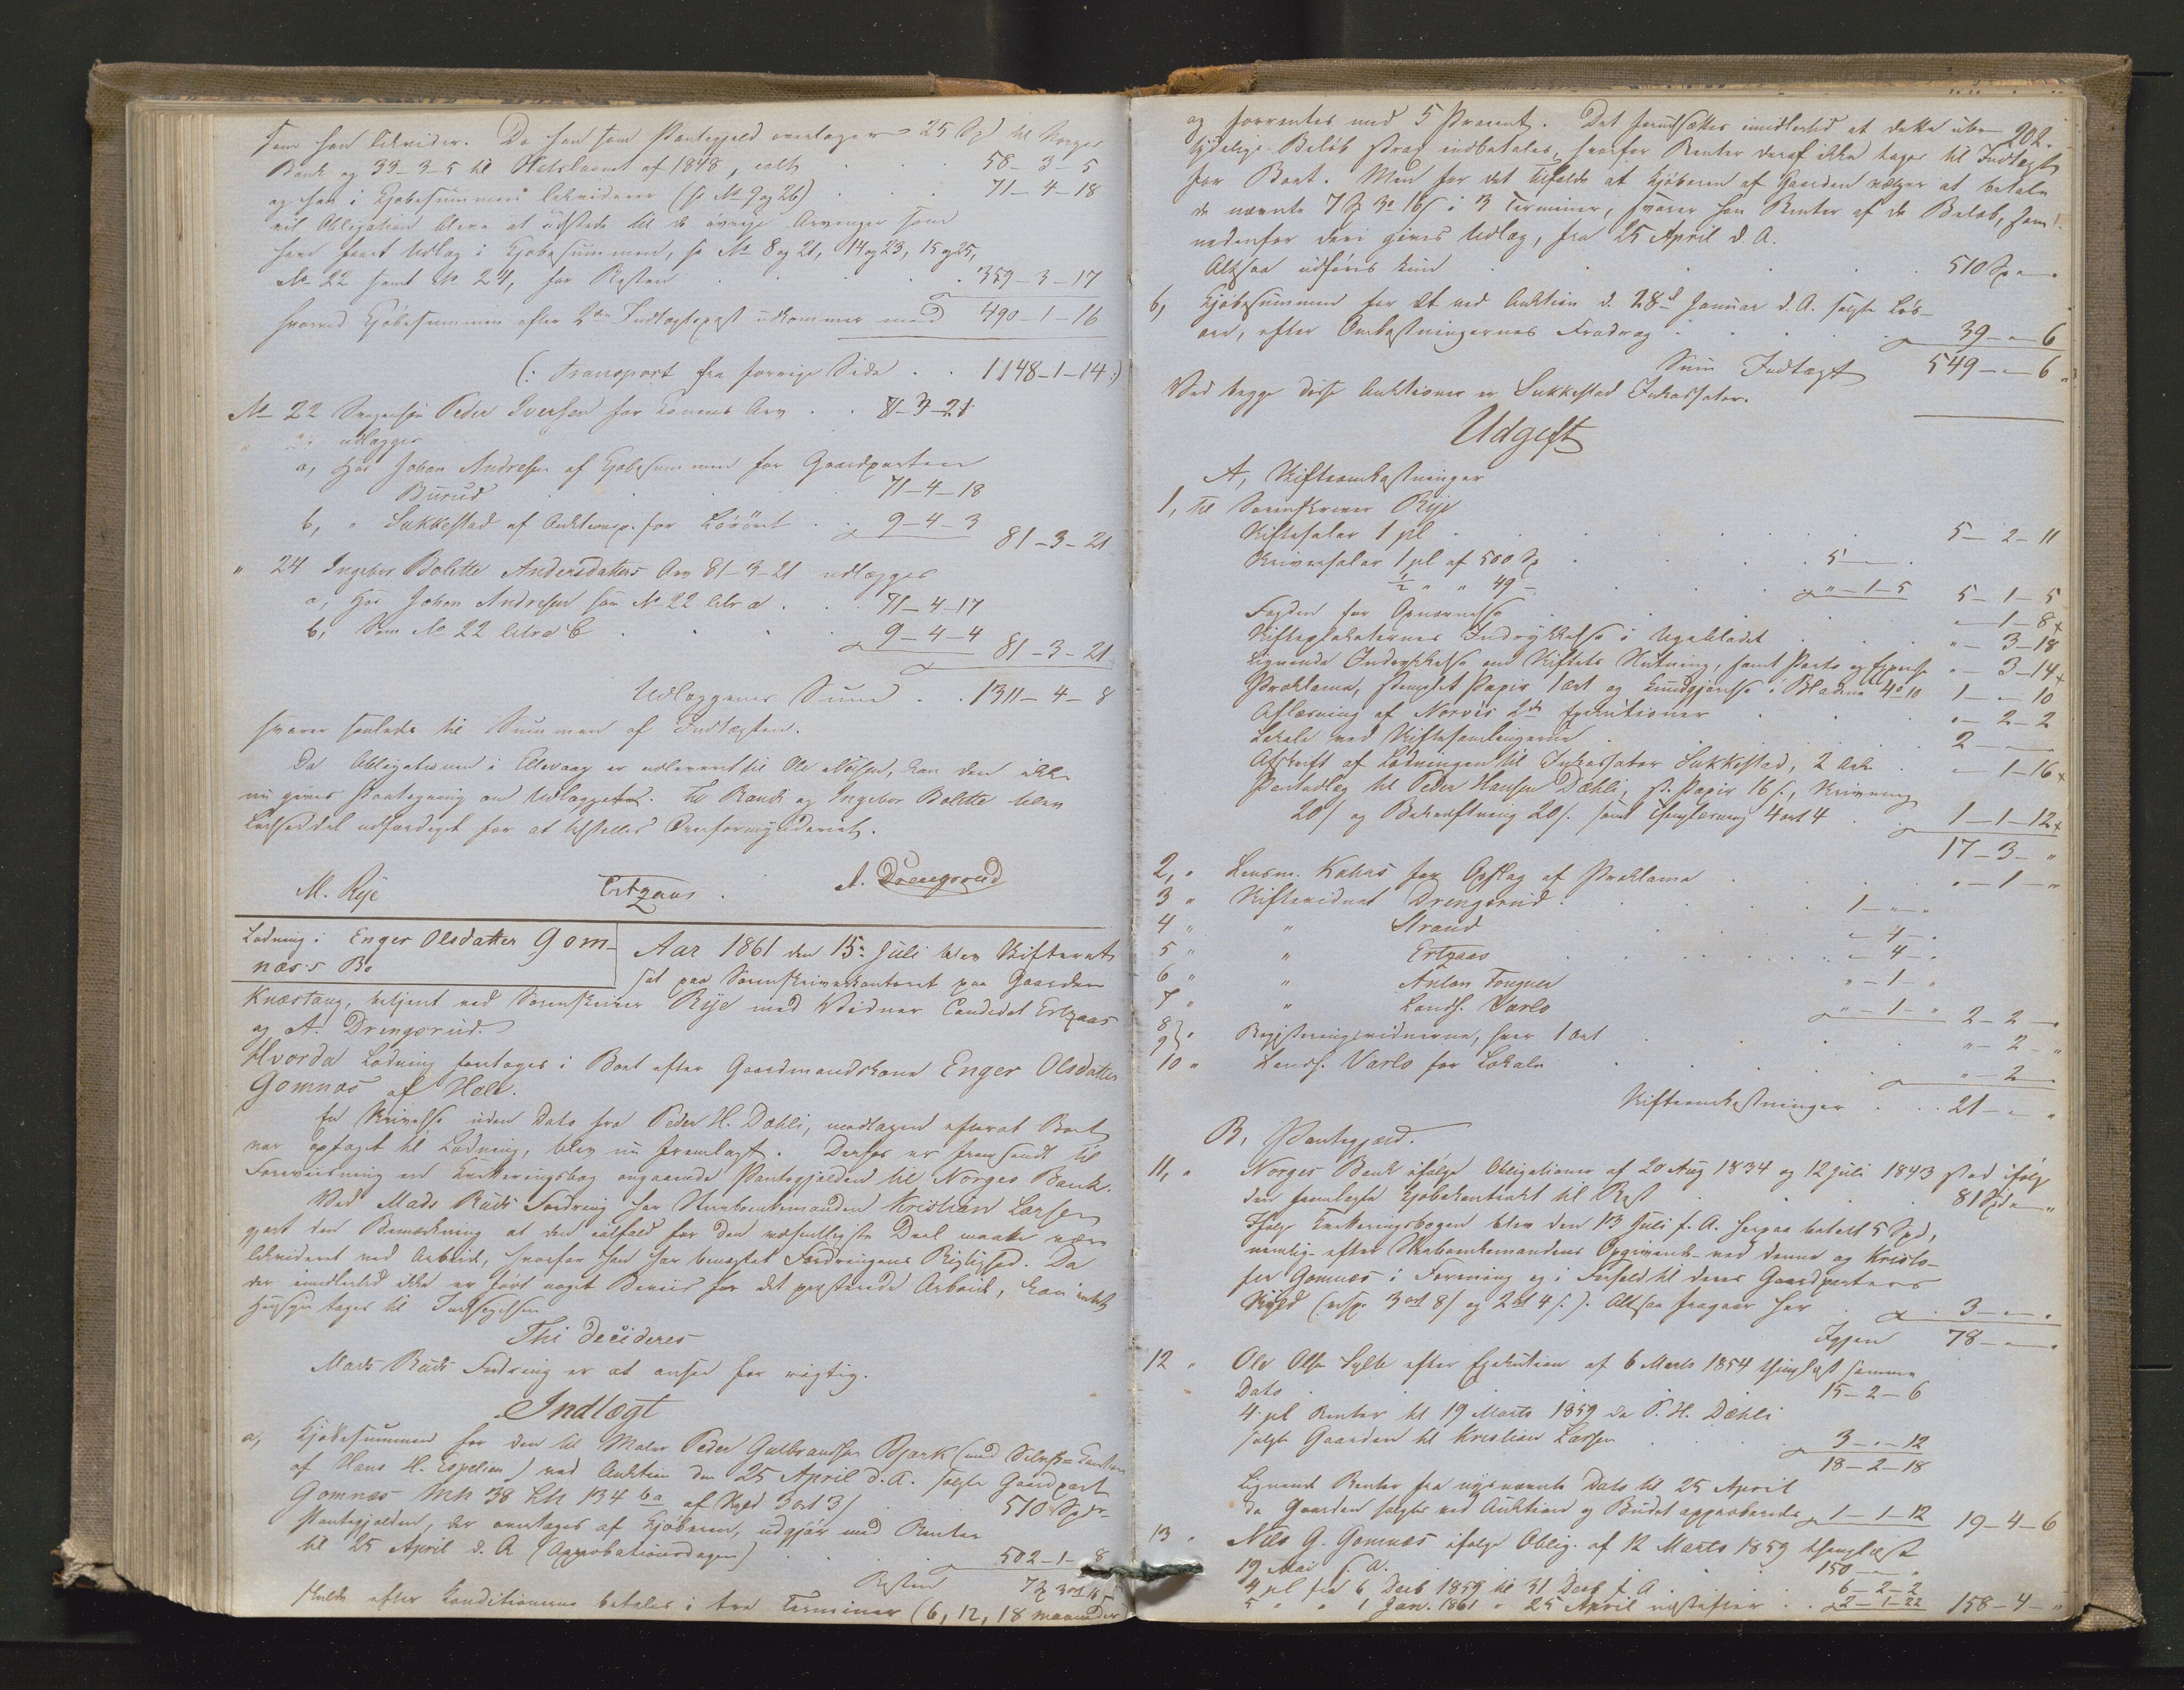 som han likvider. Da han som Pantegjeld overtager 25 Spd til Norges
Bank og 33-3-5 til Statslaanet af 1848, ialt 58-3-5
og han i Kjøbesummen likviderer (se No 9 og 26) 71-4-18
vil Obligation blive at udstede til de øvrige Arvinger som
have faaet Udlæg i Kjøbesummen, se No 8 og 21, 14 og 23, 15 og 25,
No 22 samt No 24, for Resten 359-3-17
hvorved Kjøbesummen efter 2den Indtægtspost udkommer med 490-1-16
(: Transport fra forrige Side . . 1148-1-14 :)
No 22 Peder Iversen for Konens Arv . . 81-3-21
udlægges
a, hos Johan Andresen af Kjøbesummen for Gaardparten
Burud 71-4-18
b, " Sukkestad af Auktionsp. for Løsøret . . 9-4-3 81-3-21
" 24 Ingebor Bolette Andersdatters Arv 81-3-21 udlægges
a, hos Johan Andresen som No 22 litra a . . 71-4-17
b, Som No 22 litra b 9-4-4 81-3-21
Udlæggenes Sum . . 1311-4-8
svarer saaledes til Summen af Indtægten.
Da Obligationen i Ellevaag er udleveret til Ole Nilsen, kan den ikke
nu gives Paategning om Udlægget. Til Randi og Ingebor Bolette blev
Lodseddel udfærdiget for at tilstilles Overformynderiet.
M. Rye Ertzaas. A. Drengsrud
Lodning i Enger Olsdatter Gom-
næs's Bo
Aar 1861 den 15de Juli blev Skifteret
sat paa Sorenskriverkontoret paa Gaarden
Knæstang, betjent ved Sorenskriver Rye med Vidner Candidat Ertzaas
og A. Drengsrud.
Hvorda Lodning foretoges i Boet efter Gaardmandskone Enger Olsdatter
Gomnæs af Hole.
En Skrivelse uden Dato fra Peder H. Dæhli, modtagen efterat Boet
var optaget til Lodning, blev nu fremlagt. Derhos er fremsendt til
Foreviisning en Kvitteringsbog angaaende Pantegjelden til Norges Bank.
Ved Mads Ruds Fordring har Stervboenkemanden Kristian Larsen
gjort den Bemærkning at den ialfald for den væsentligste Deel maatte være
likvideret ved Arbeide, hvorfor han har benægtet Fordringens Rigtighed. Da
der imidlertid ikke er ført noget Beviis for det præsterede Arbeide, kan intet
Hensyn tages til Indsigelsen.
Thi decideres
Mads Ruds Fordring er at ansee for rigtig.
Indtægt
a, Kjøbesummen for den til Maler Peder Gulbrandsen Bjørk (med Selvsk=Kaution
af Hans H. Espelien) ved Auktion den 25 April d. A. solgte Gaardpart
Gomnæs Mn 38 Ln 134 ba af Skyld 3 ort 3 s 510 Spd -
Pantegjelden, der overtages af Kjøberen, udgjør med Renter
til 25 April d. A. (Approbationsdagen) 502-1-8
Resten 7 Spd 3 ort 16 s
skulde efter Konditionerne betales i tre Terminer (6, 12, 18 maaneder
202.
og forrentes med 5 Procent. Det forudsættes imidlertid at dette ube-
tydelige Beløb strax indbetales, hvorfor Renter deraf ikke tages til Indtægt
for Boet. Men for det tilfælde at Kjøberen af Gaarden vælger at betale
de nævnte 7 Spd 3 o 16 s i 3 Terminer, svarer han Renter af de Beløb, som
nedenfor deri gives Udlæg, fra 25 April d. A.
Altsaa udføres kun 510 Spd - "
b, Kjøbesummen for det ved Auktion d. 28de Januar d. A. solgte Løs-
øre, efter Omkostningernes Fradrag 39-"-6
Sum Indtægt 549-"-6
Ved begge disse Auktioner er Sukkestad Inkassator.
Udgift
A, Skifteomkostninger
1, til Sorenskriver Rye
Skiftesalær 1 pCt 5-2-11
Skriversalær 1 pCt af 500 Spd 5-"-"
½ " " 49 - "-1-5 5-1-5
Fogden for Opnævnelse "-1-8
Skifteplakaternes Indrykkelse i Ugebladet "-3-18
Lignende Indrykkelse om Skiftets Slutning, samt Porto og Expense "-3-14
Proklama, stemplet Papir 1 ort og Kundgjørelse i Bladene 4 o 10 1-"-10
Aflæsning af Norvis 2de Exekutioner "-2-2
Lokale ved Skiftesamlingerne 2-"-"
Afskrift af Lodningen til Inkassator Sukkestad, 2 Ark "-1-16
Panteudlæg til Peder Hansen Dæhli, st. Papir 16 s., Skrivning
20 s og Bekræftning 20 s. samt Thinglæsning 4 ort 4 1-1-12
17-3-"
2, " Lensm. Kahrs for Opslag af Proklama "-1-"
3 " Skiftevidnet Drengsrud 1-"-"
4 " " Strand "-4-"
5 " " Ertzaas "-4-"
6 " " Anton Fougner "-1-"
7 " " Landh. Varlo "-1-" 2-2-"
8
9 } " Registreringsvidnerne, hver 1 ort "-2-"
10 " Landh. Varlo for Lokale "-2-"
Skifteomkostninger . . 21-"-"
B, Pantegjeld.
11, " Norges Bank ifølge Obligationer af 20 Aug 1834 og 12 Juli 1843 stod ifølge
den fremlagte Kjøbekontrakt til Rest 81 Spd "-"
Ifølge Kvitteringsbogen blev den 13 Juli f. A. herpaa betalt 5 Spd,
nemlig - efter Stervboenkemandens Opgivende - ved denne og Kristo-
fer Gomnæs i Forening og i Forhold til deres Gaardparters
Skyld (resp. 3 ort 8 s og 2 ort 4 s.). Altsaa fragaar her 3-"-"
Igjen 78-"-"
12 " Ole Olsen Sylte efter Exekution af 6 Marts 1854 thinglæst samme
Dato 15-2-6
4 pCt Renter til 19 Marts 1859 da P. H. Dæhli
solgte Gaarden til Kristian Larsen 3-"-12
18-2-18
Lignende Renter fra nysnævnte Dato til 25 April
da Gaarden solgtes ved Auktion og Budet approberedes 1-1-12 19-4-6
13 " Nils G. Gomnæs ifølge Oblig. af 12 Marts 1859 thinglæst
19 Mai s. A. 150-"-"
4 pCt fra 6 Decb 1859 til 31 Decb f. A. 6-2-2
5 " " 1 Jan. 1861 " 25 April næstefter . . 2-1-22 158-4-"